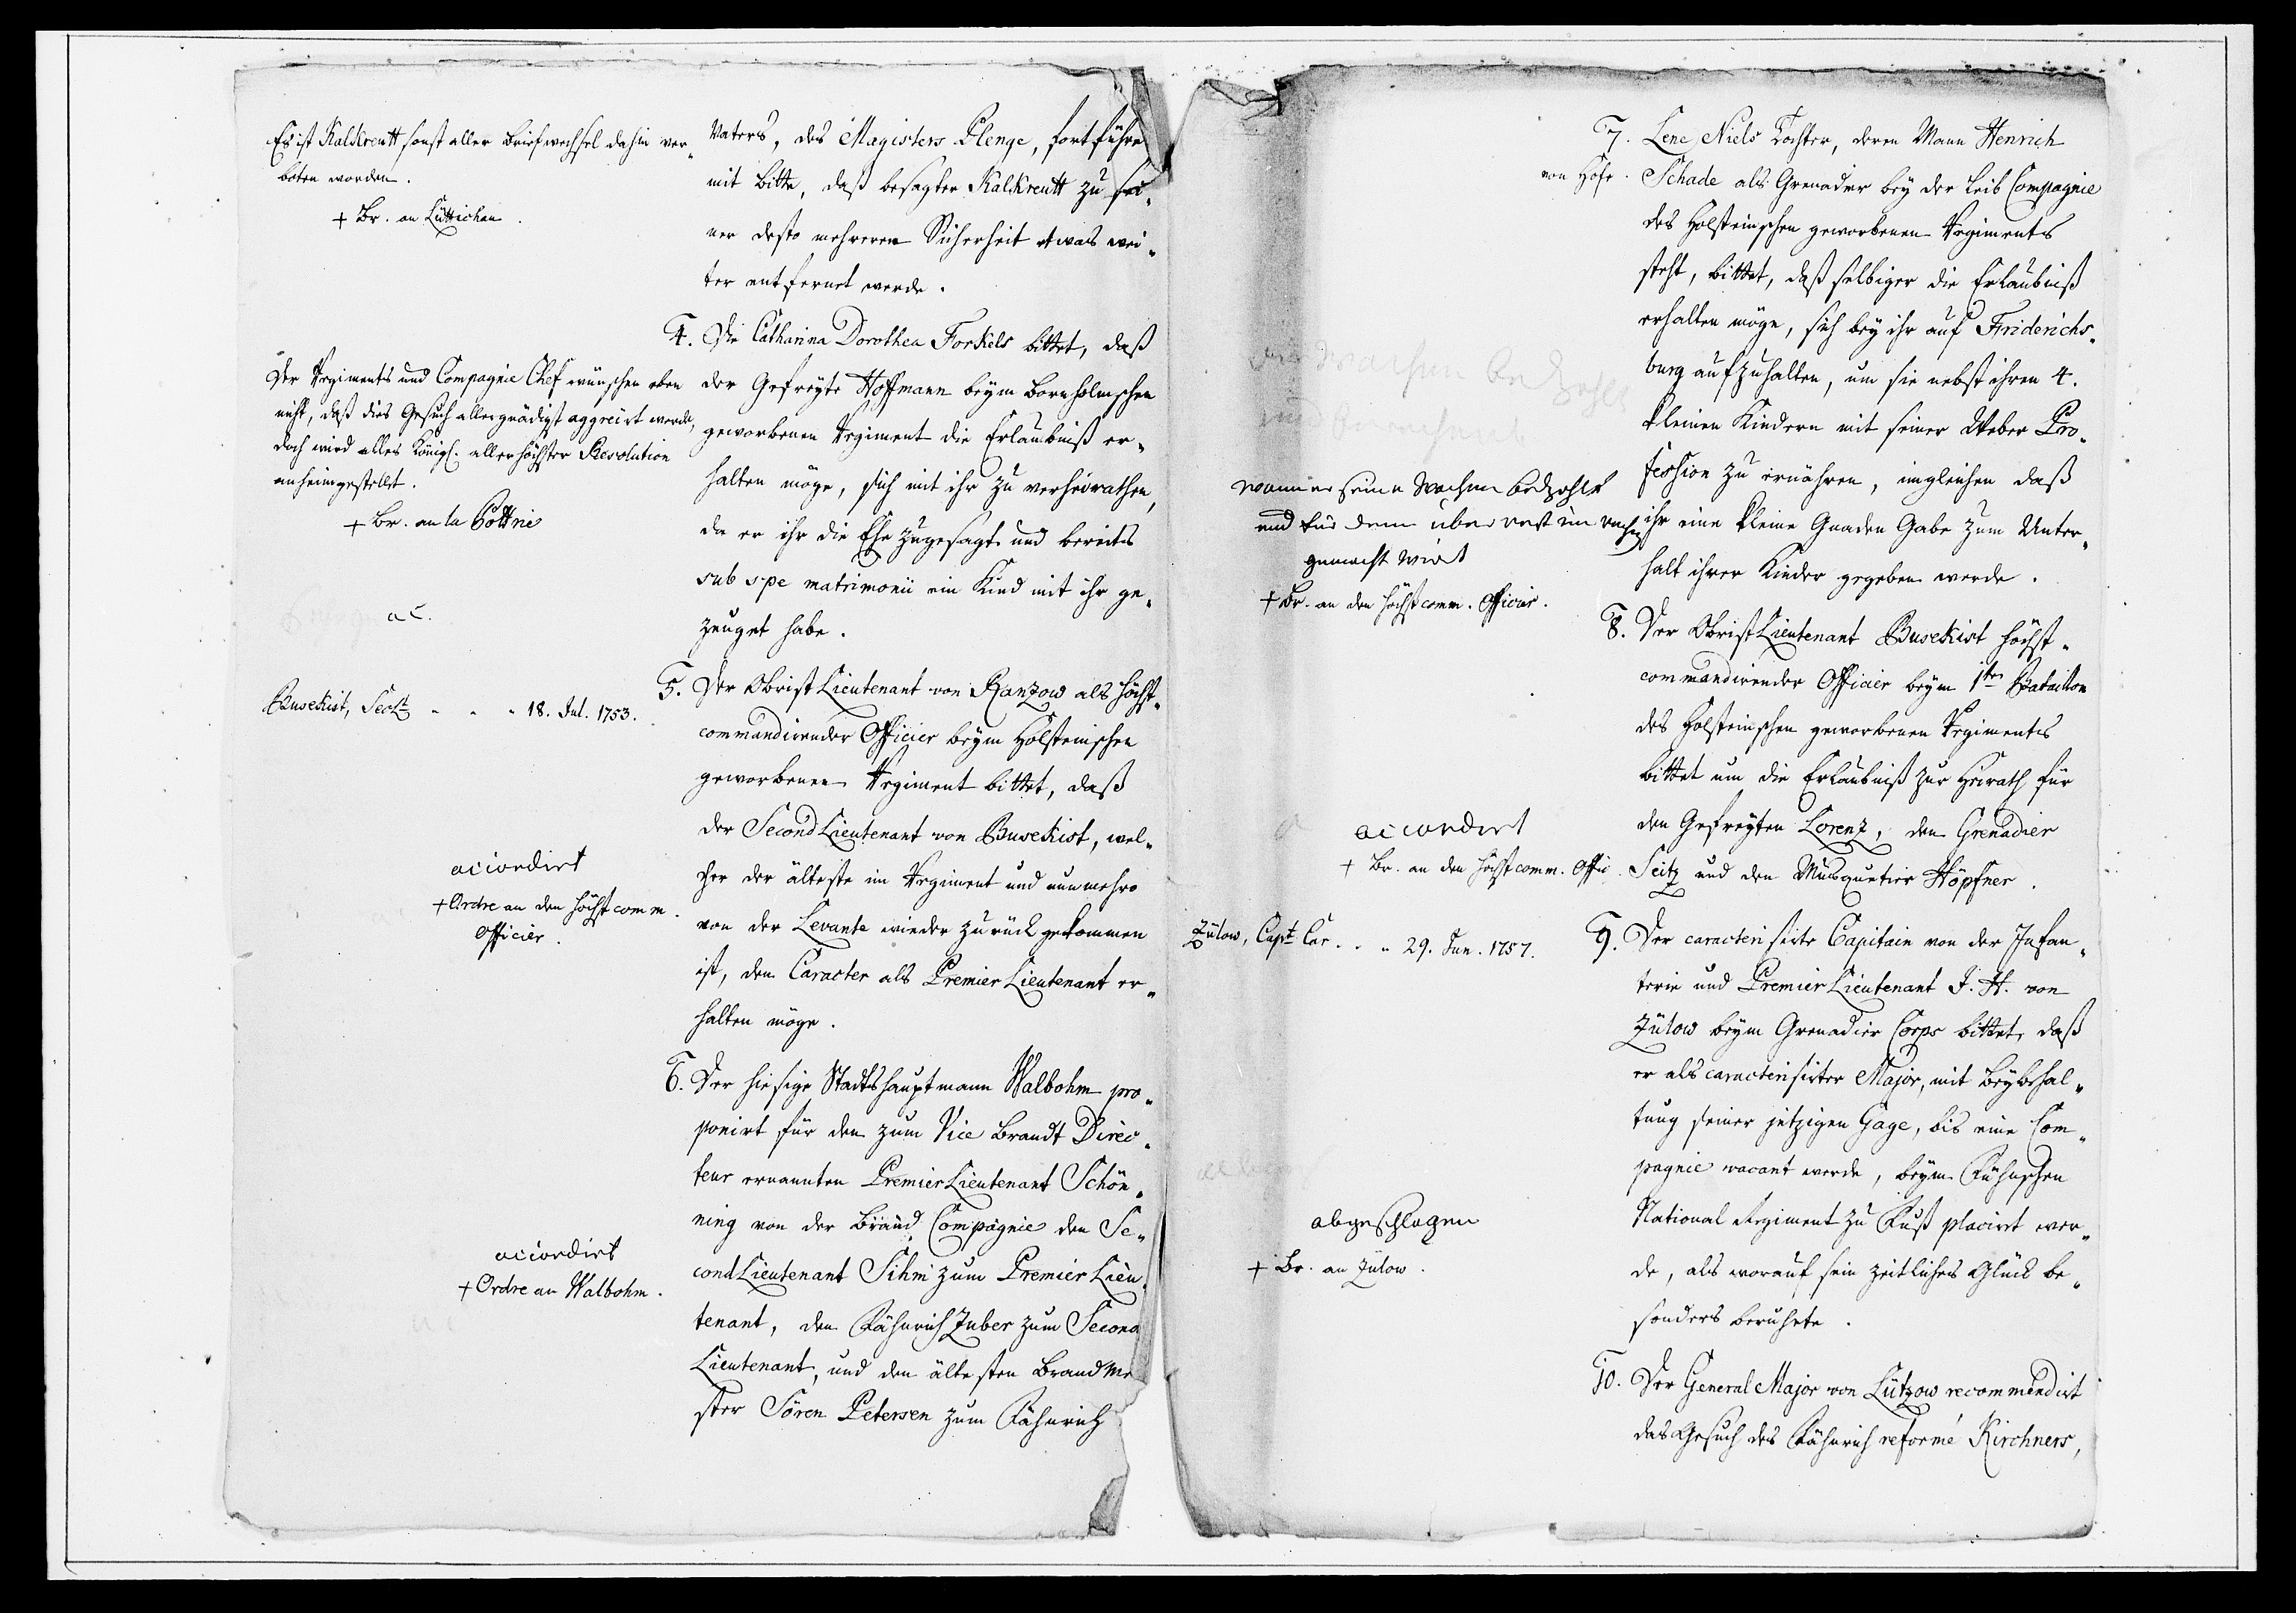 Es ist Kalkreutt sonst aller Briefwechsel dahin ver-
boten worden.
+ Br. an Lüttichau.
Vaters, des Magisters Plenge, fortführe
mit Bitte, daß besagter Kalkreutt zu sei-
ner desto mehreren Sicherheit etwas wei-
ter entfernet werde.
4. Die Catharina Dorothea Forkels bittet, daß
der Gefreyte Hoffmann beym Bornholmschen
geworbenen Regiment die Erlaubniß er-
halten möge, sich mit ihr zu verheirathen,
da er ihr die Ehe zugesagt und bereits
sub spe matrimonii ein Kind mit ihr ge-
zeuget habe.
Der Regiments und Compagnie Chef wünschen eben
nicht, daß dies Gesuch allergnädigst aggreirt werde,
doch wird alles Königl. allerhöchster Resolution
anheimgestellet.
+ Br. an la Pottrie
ac.
5. Der Obrist Lieutenant von Ranzow als höchst-
commandirender Officier beym Holsteinschen
geworbenen Regiment bittet, daß
der Second Lieutenant von Busekist, wel-
cher der älteste im Regiment und nunmehro
von der Levante wieder zurück gekommen
ist, den Caracter als Premier Lieutenant er-
halten möge.
Busekist, Seclt . . . 18. Jul. 1753.
accordirt
+ Ordre an den höchst comm.
Officier.
6. Der hiesige Stadtshauptmann Walbohm pro-
ponirt für den zum Vice Brandt Direc-
teur ernannten Premier Lieutenant Schön-
ning von der Brand Compagnie den Se-
cond Lieutenant Sihm zum Premier Lieu-
tenant, den Fähnrich Zuber zum Second
Lieutenant, und den ältesten Brandmei
ster Sören Petersen zum Fähnrich
accordirt
+ Ordre an Walbohm.
7. Lene Niels Tochter, deren Mann Henrich
von Höfe. Schade als Grenadier bey der Leib Compagnie
des Holsteinschen geworbenen Regiments
steht, bittet, daß selbiger die Erlaubniß
erhalten möge, sich bey ihr auf Friderichs-
burg aufzuhalten, um sie nebst ihren 4.
kleinen Kindern mit seiner Weber Pro-
fession zu ernähren, imgleichen daß
ihr eine kleine Gnaden Gabe zum Unter-
halt ihrer Kinder gegeben werde.
wann er seine Wachen bedzahlt
und für dem überrest
gemacht wird
+ Br. an den höchst comm. Officier.
8. Der Obrist Lieutenant Busekist höchst-
commandirender Officier beym 1ten Bataillon
des Holsteinschen geworbenen Regiments
bittet um die Erlaubniß zur Heirath für
den Gefreyten Lorenz, den Grenadier
Seitz und den Musquetier Höpfner.
accordirt
+ Br. an den höchst comm. Offic.
9. Der caracterisirte Capitain von der Infan-
terie und Premier Lieutenant J. H. von
Zülow beym Grenadier Corps bittet, daß
er als caracterisirter Major, mit Beybehal-
tung seiner jetzigen Gage, bis eine Com-
pagnie vacant werde, beym Fühnschen
National Regiment zu Fuß placirt wer-
de, als worauf sein zeitliches Glück be-
sonders beruhete.
Zülow, Capt Car. . . 29. Jun. 1757.
abgeschlagen
+ Br. an Zülow.
10. Der General Major von Lützow recommendirt
das Gesuch des Fähnrich reformé Kirchners,